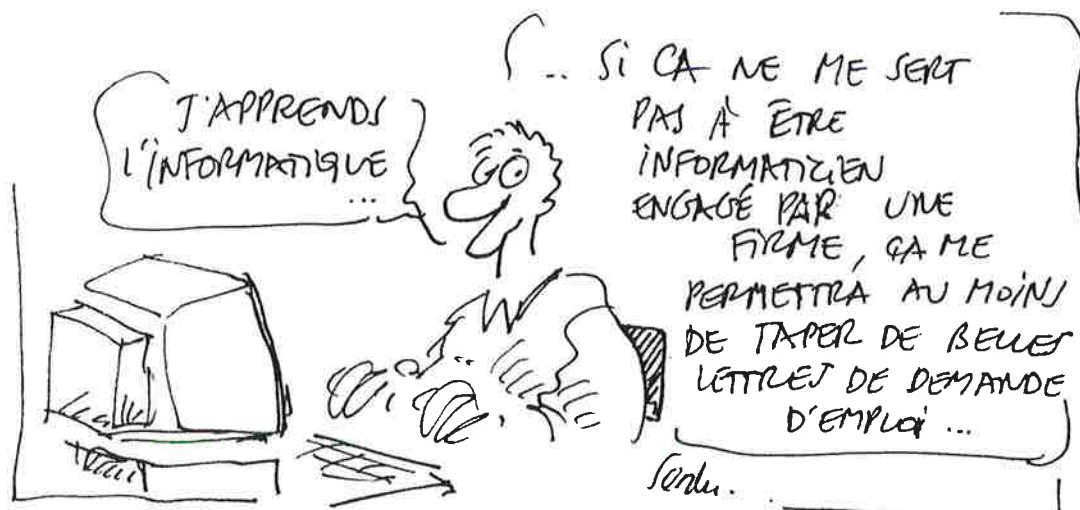 J'APPRENDS
L'INFORMATIQUE
...
.. Si CA NE ME SERT
PAS À ÊTRE
INFORMATICIEN
ENGAGÉ PAR UNE
FIRME, ÇA ME
PERMETTRA AU MOINS
DE TAPER DE BELLES
LETTRES DE DEMANDE
D'EMPLOI ...